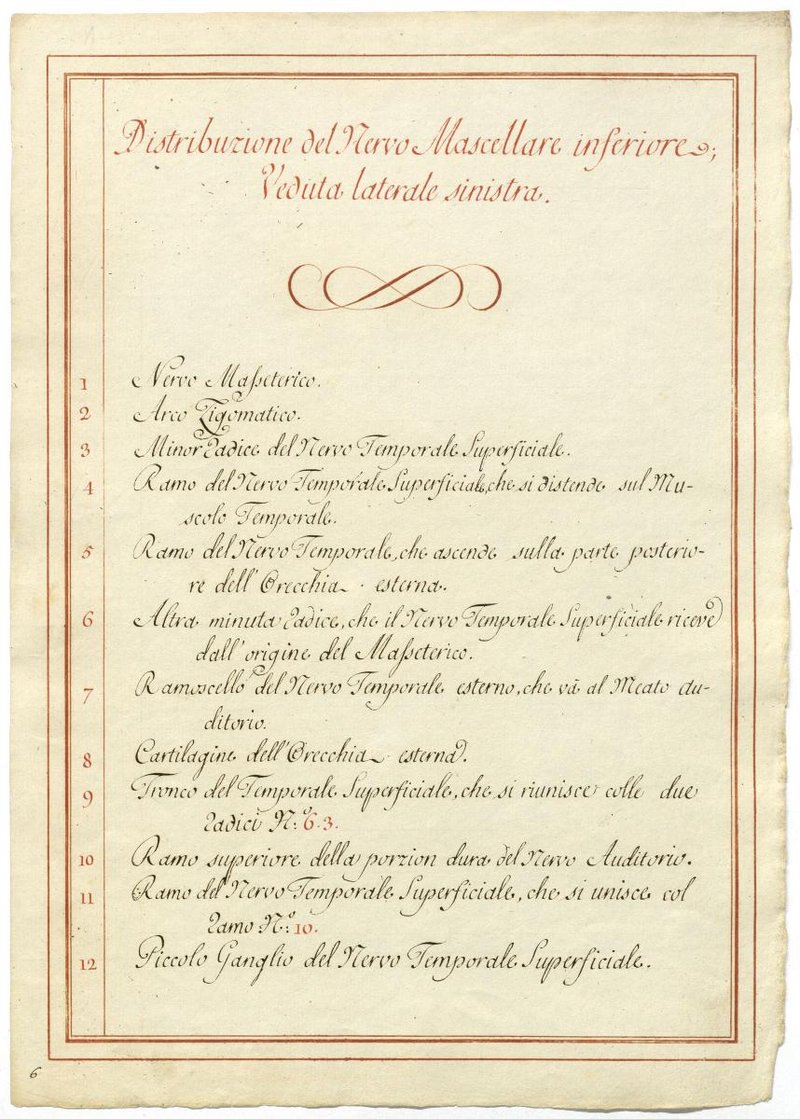 Distribuzione del Nervo Mascellare inferiore;
Veduta laterale sinistra.
1 Nervo Maſseterico.
2 Arco Zigomatico.
3 Minor Radice del Nervo Temporale Superficiale.
4 Ramo del Nervo Temporale Superficiale, che si distende sul Mu-
scolo Temporale.
5 Ramo del Nervo Temporale, che ascende sulla parte posterio-
re dell'Orecchia esterna.
6 Altra minuta Radice, che il Nervo Temporale Superficiale riceve
dall'origine del Maſseterico.
7 Ramoscello del Nervo Temporale esterno, che và al Meato au-
ditorio.
8 Cartilagine dell'Orecchia esterna.
9 Tronco del Temporale Superficiale, che si riunisce colle due
Radici N.º 6. 3.
10 Ramo superiore della porzion dura del Nervo Auditorio.
11 Ramo del Nervo Temporale Superficiale, che si unisce col
Ramo N.º 10.
12 Piccolo Ganglio del Nervo Temporale Superficiale.
6